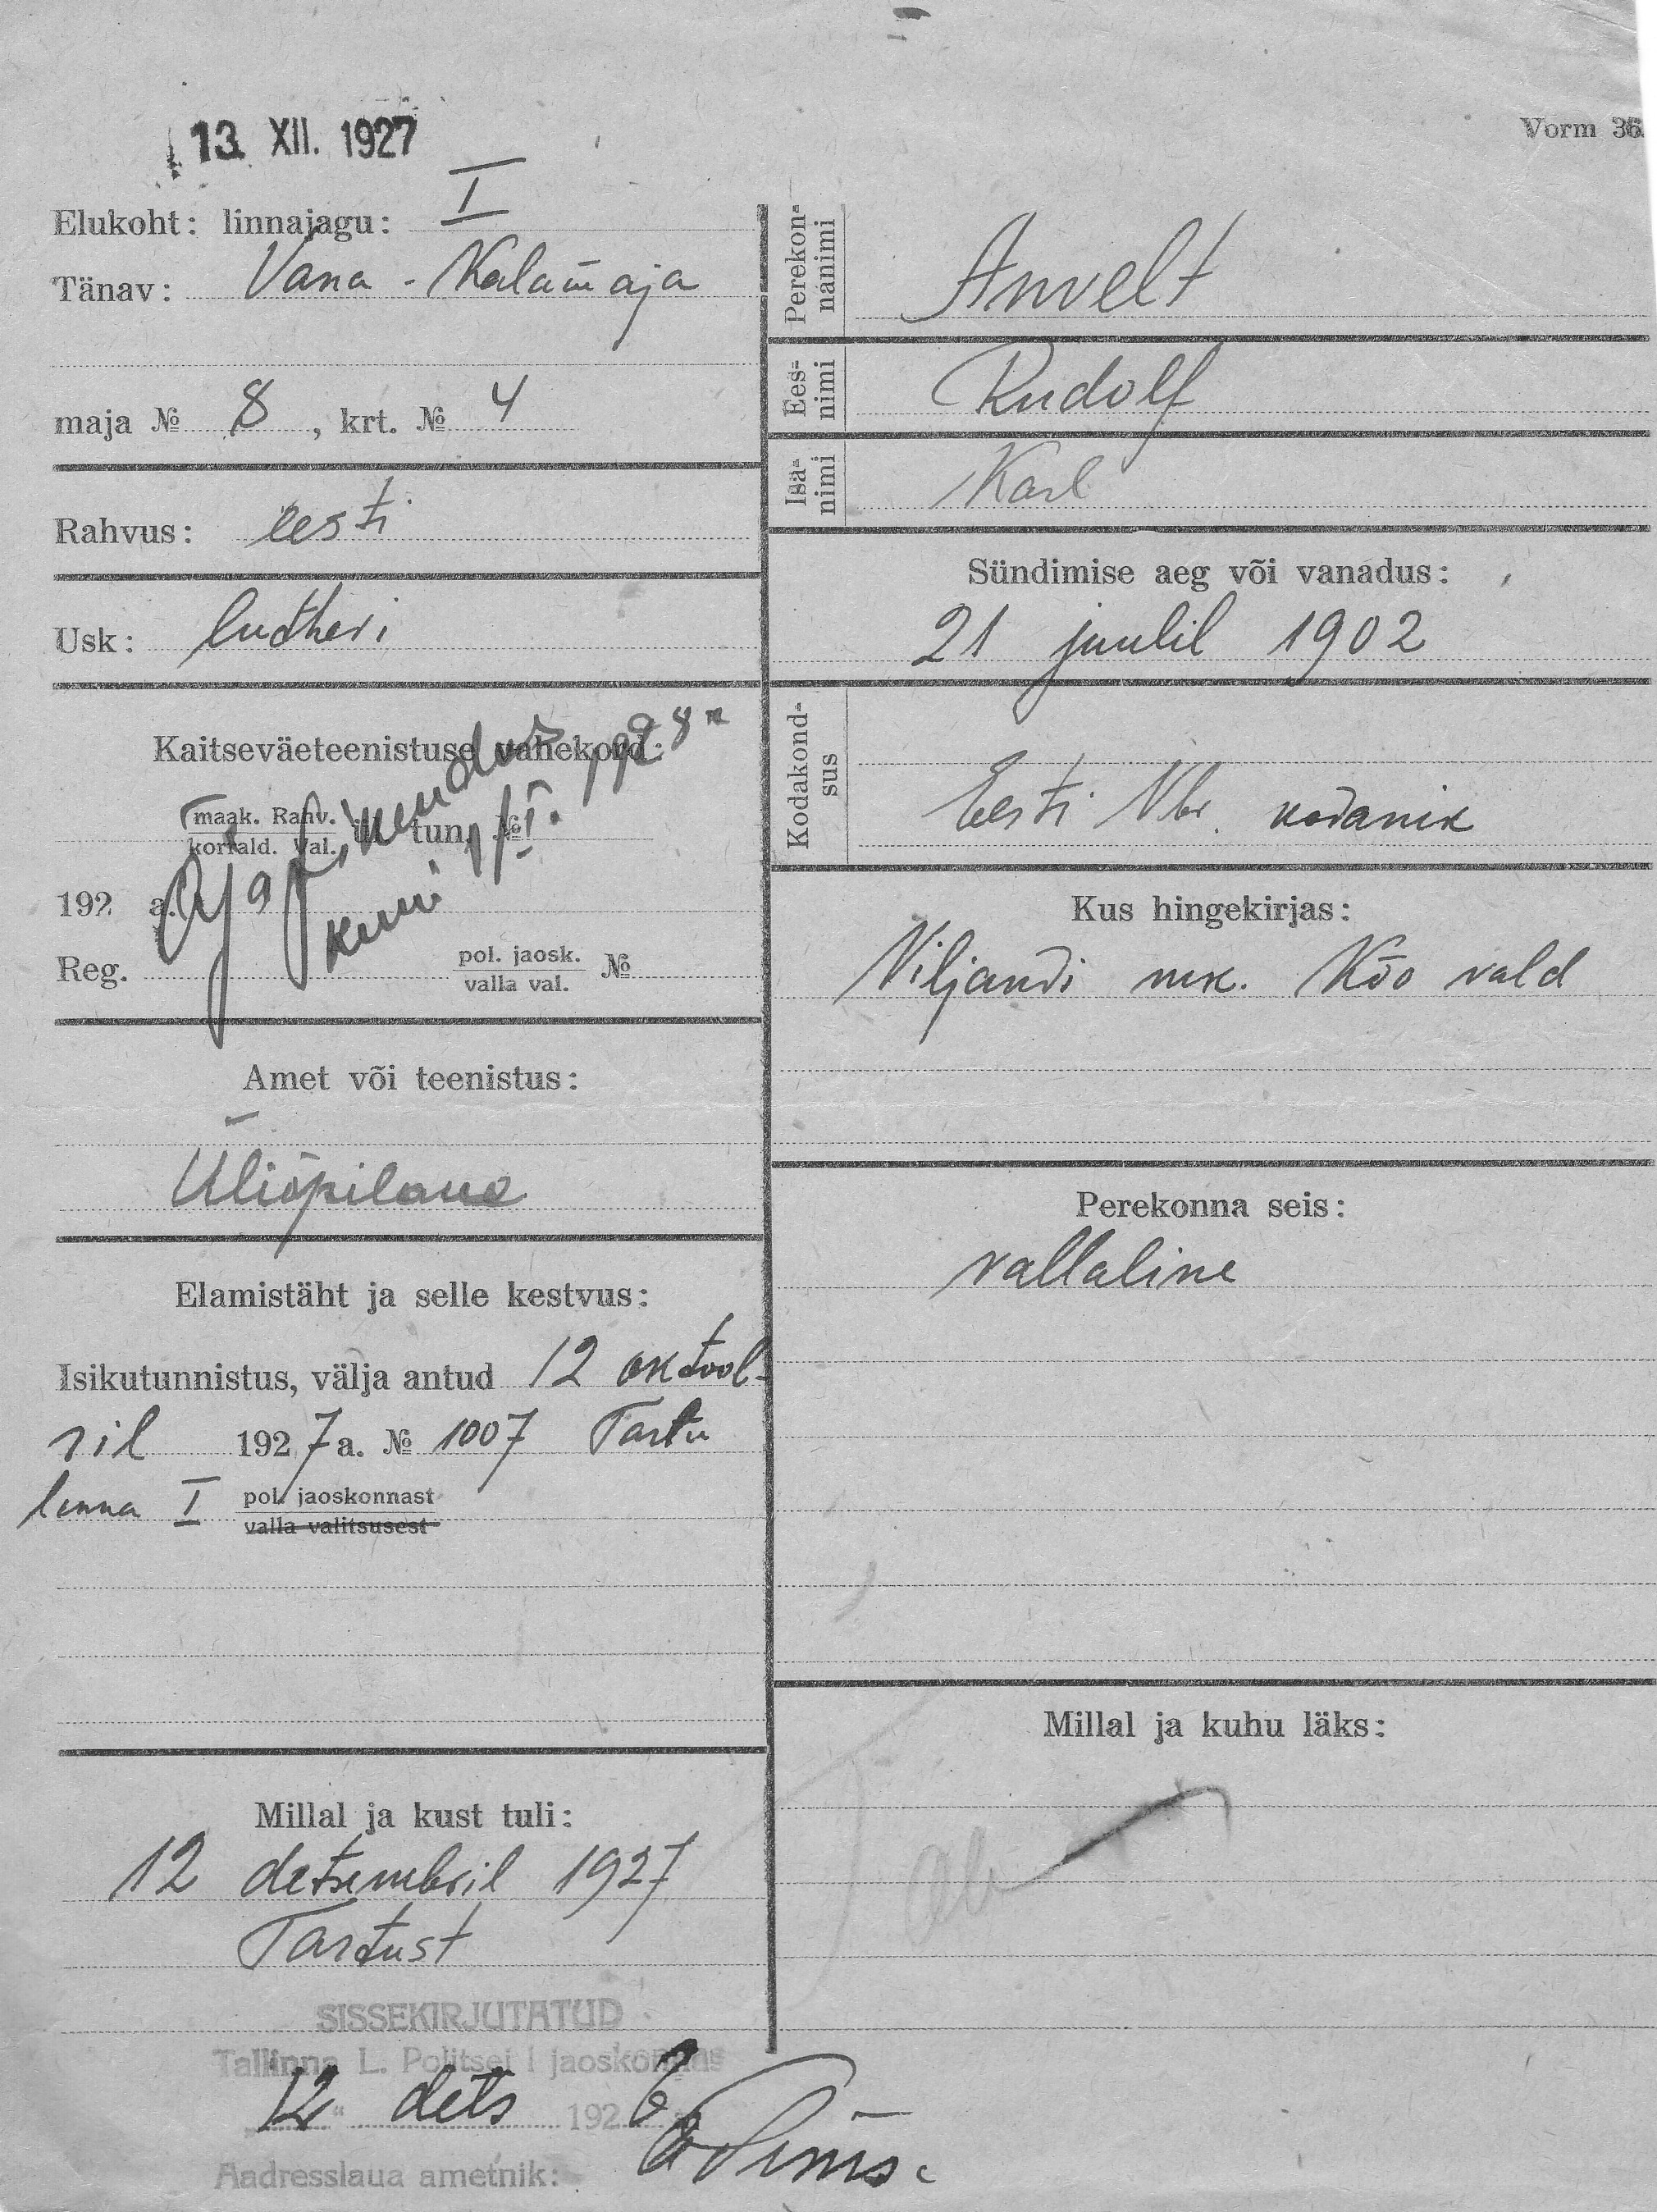 13. XII. 1927
Vorm 36.
Elukoht: linnajagu: I
Tänav: Vana-Kalamaja
maja № 8, krt. № 4
Rahvus: eesti
Usk: lutheri
Kaitseväeteenistuse vahekord:
maak. Rahv.
korrald. Val. ül. tun. №
Ajapikendus
kuni 1/I. 1928 a
192 a.
Reg. pol. jaosk. №
valla val.
Amet või teenistus:
Üliõpilane
Elamistäht ja selle kestvus:
Isikutunnistus, välja antud 12 oktoob-
ril 1927 a. № 1007 Tartu
linna I pol. jaoskonnast
valla valitsusest
Millal ja kust tuli:
12 detsembril 1927
Tartust
SISSEKIRJUTATUD
Tallinna L. Politsei I jaoskonnas
12 dets 192
Aadresslaua ametnik:
Perekon-
nanimi
Anvelt
Ees-
nimi
Rudolf
Isa-
nimi
Karl
Sündimise aeg või vanadus:
21 juulil 1902
Kodakond-
sus
Eesti Vbr. kodanik
Kus hingekirjas:
Viljandi mk. Kõo vald
Perekonna seis:
vallaline
Millal ja kuhu läks: